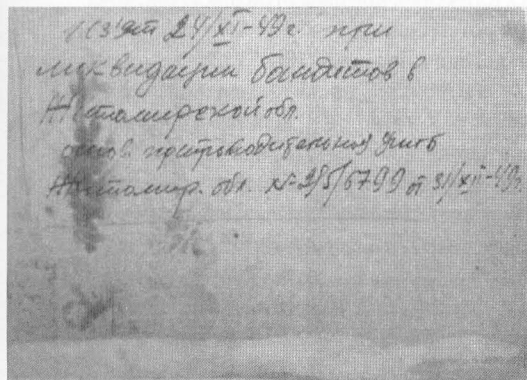 Изъят 24/XI-49г. при
ликвидации бандитов в
Житомирской обл.
основ. препроводительная УМГБ
Житомир. обл. № 2/5/6799 от 31/XII-49г.